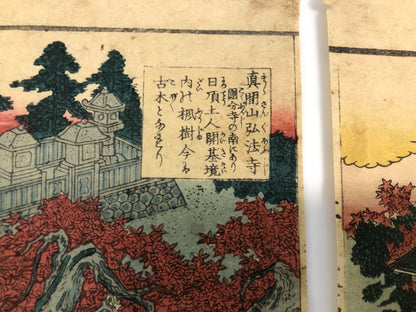 真間山弘法寺
國分寺の南にあり
日頂上人開基境
内の楓樹今ハ
古木となれり